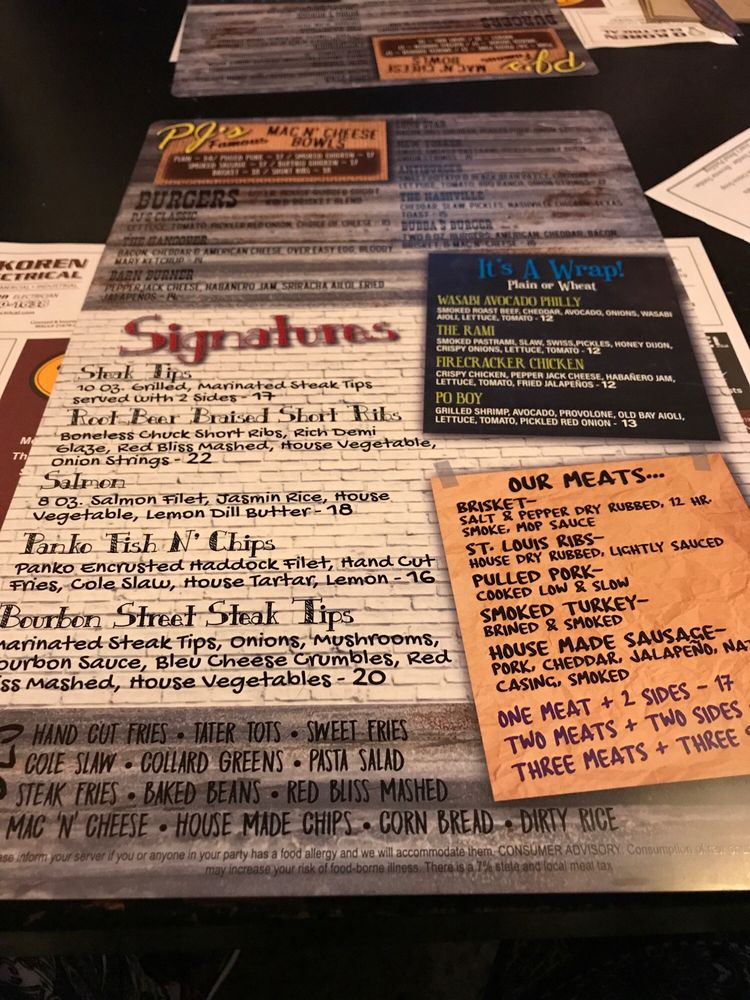 PJ's
Famous
MAC N' CHEESE
BOWLS
BURGERS
PJ'S CLASSIC
LETTUCE, TOMATO, PICKLED RED ONION, CHOICE OF CHEESE
THE HANGOVER
BACON, CHEDDAR & AMERICAN CHEESE, OVER EASY EGG, BLOODY
MARY KETCHUP - 14
BARN BURNER
PEPPERJACK CHEESE, HABANERO JAM, SRIRACHA AIOLI, FRIED
JALAPENOS - 14
THE NASHVILLE
CHEDDAR, SLAW, PICKLES, NASHVILLE CHICKEN, TEXAS
TOAST
BUBBA'S BURGER
BURGERS, AMERICAN, CHEDDAR, BACON,
& MAC N' CHEESE
It's A Wrap!
Plain or Wheat
WASABI AVOCADO PHILLY
SMOKED ROAST BEEF, CHEDDAR, AVOCADO, ONIONS, WASABI
AIOLI, LETTUCE, TOMATO - 12
THE RAMI
SMOKED PASTRAMI, SLAW, SWISS, PICKLES, HONEY DIJON,
CRISPY ONIONS, LETTUCE, TOMATO - 12
FIRECRACKER CHICKEN
CRISPY CHICKEN, PEPPER JACK CHEESE, HABAÑERO JAM,
LETTUCE, TOMATO, FRIED JALAPEÑOS - 12
PO BOY
GRILLED SHRIMP, AVOCADO, PROVOLONE, OLD BAY AIOLI,
LETTUCE, TOMATO, PICKLED RED ONION - 13
Signatures
Steak Tips
10 oz. Grilled, Marinated Steak Tips
served with 2 Sides - 17
Root Beer Braised Short Ribs
Boneless Chuck Short Ribs, Rich Demi
Glaze, Red Bliss Mashed, House Vegetable,
Onion Strings - 22
Salmon
8 oz. Salmon Filet, Jasmin Rice, House
Vegetable, Lemon Dill Butter - 18
Panko Fish N' Chips
Panko Encrusted Haddock Filet, Hand Cut
Fries, Cole Slaw, House Tartar, Lemon - 16
Bourbon Street Steak Tips
Marinated Steak Tips, Onions, Mushrooms,
ourbon Sauce, Bleu Cheese Crumbles, Red
iss Mashed, House Vegetables - 20
OUR MEATS...
BRISKET-
SALT & PEPPER DRY RUBBED, 12 HR.
SMOKE, MOP SAUCE
ST. LOUIS RIBS-
HOUSE DRY RUBBED, LIGHTLY SAUCED
PULLED PORK-
COOKED LOW & SLOW
SMOKED TURKEY-
BRINED & SMOKED
HOUSE MADE SAUSAGE-
PORK, CHEDDAR, JALAPEÑO, NAT
CASING, SMOKED
ONE MEAT + 2 SIDES - 17
TWO MEATS + TWO SIDES
THREE MEATS + THREE S
HAND CUT FRIES • TATER TOTS • SWEET FRIES
COLE SLAW • COLLARD GREENS • PASTA SALAD
STEAK FRIES • BAKED BEANS • RED BLISS MASHED
MAC 'N' CHEESE • HOUSE MADE CHIPS • CORN BREAD • DIRTY RICE
ase inform your server if you or anyone in your party has a food allergy and we will accommodate them. CONSUMER ADVISORY. Consumption of
may increase your risk of food-borne illness. There is a 7% state and local meal tax
KOREN
ECTRICAL